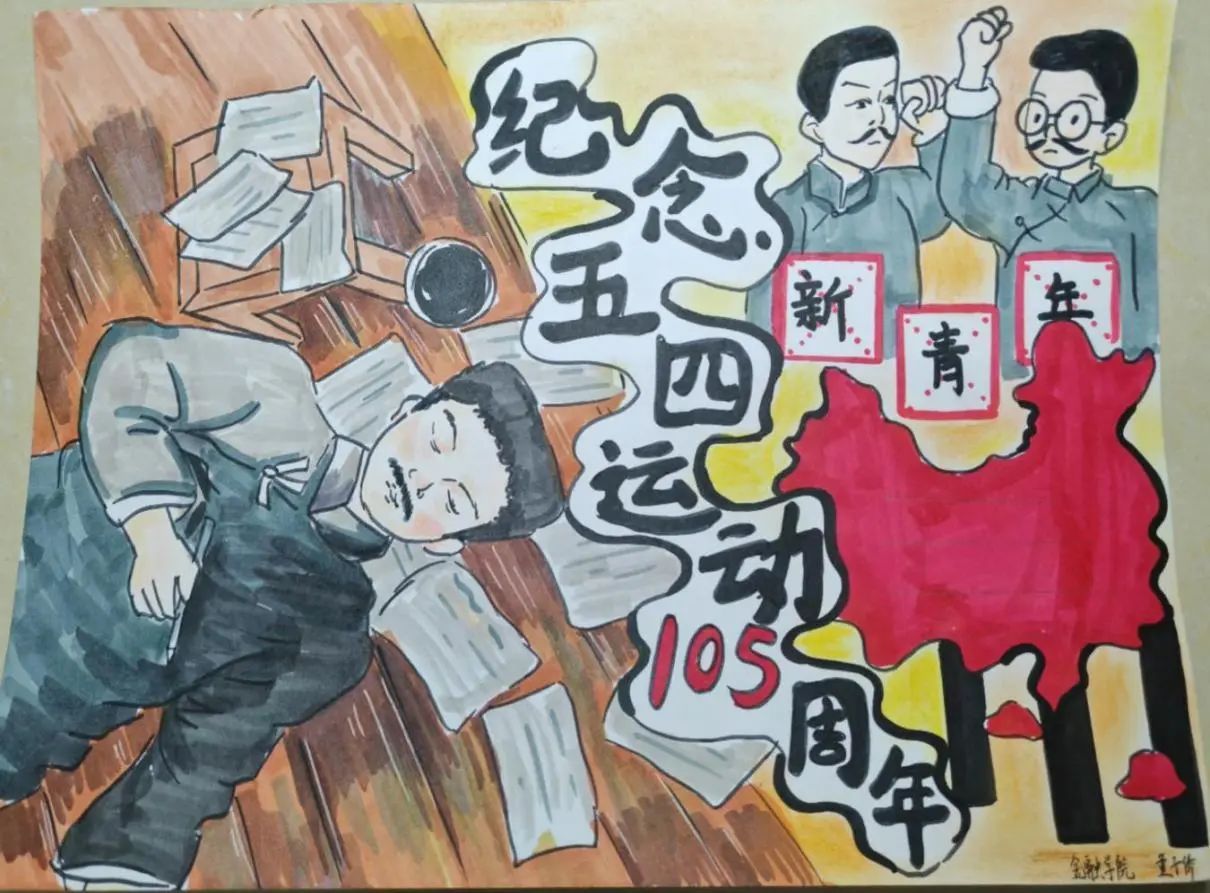 纪念
五四
运动
105
周年
新
青
年
金融学院